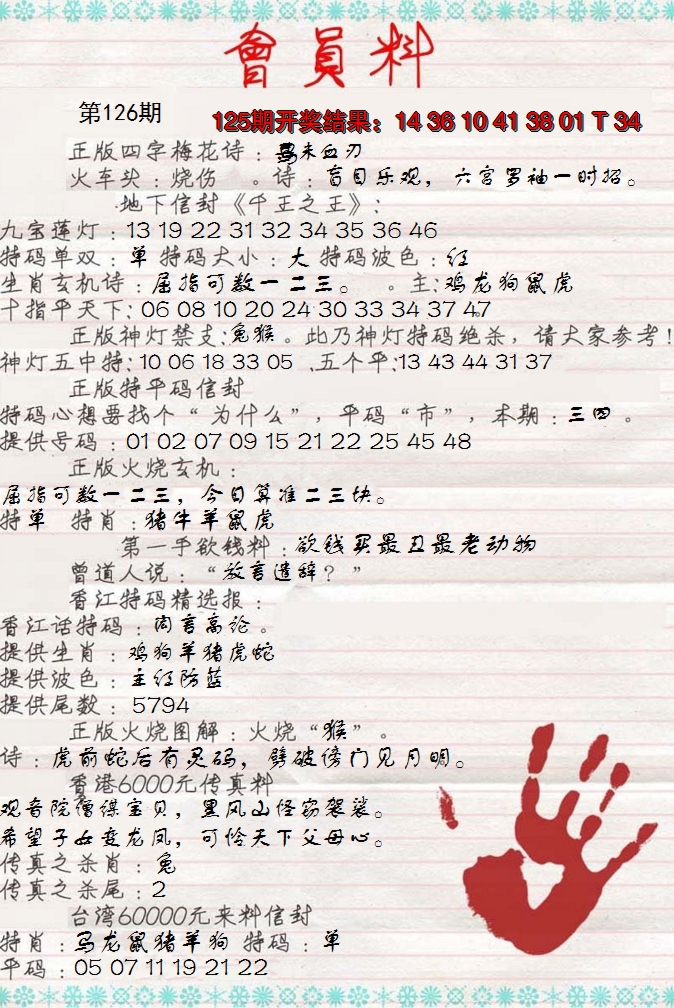 會員料
第126期
125期开奖结果：14 36 10 41 38 01 T 34
正版四字梅花诗：马未血刃
火车头：烧伤 。诗：盲目乐观，六宫罗袖一时招。
地下信封《千王之王》：
九宝莲灯：13 19 22 31 32 34 35 36 46
特码单双：单 特码大小：大 特码波色：红
生肖玄机诗：屈指可数一二三。 。主：鸡龙狗鼠虎
十指平天下：06 08 10 20 24 30 33 34 37 47
正版神灯禁支：兔猴。此乃神灯特码绝杀，请大家参考！
神灯五中特：10 06 18 33 05 、五个平：13 43 44 31 37
正版特平码信封
特码心想要找个“为什么”，平码“市”，本期：三四。
提供号码：01 02 07 09 15 21 22 25 45 48
正版火烧玄机：
屈指可数一二三，今日算准二三块。
特单 特肖：猪牛羊鼠虎
第一手欲钱料：欲钱买最丑最老动物
曾道人说：“放言遣辞？”
香江特码精选报：
香江话特码：阔言高论。
提供生肖：鸡狗羊猪虎蛇
提供波色：主红防蓝
提供尾数：5794
正版火烧图解：火烧“猴”。
诗：虎前蛇后有灵码，劈破傍门见月明。
香港6000元传真料
观音院僧谋宝贝，黑风山怪窃袈裟。
希望子女变龙凤，可怜天下父母心。
传真之杀肖：兔
传真之杀尾：2
台湾60000元来料信封
特肖：马龙鼠猪羊狗 特码：单
平码：05 07 11 19 21 22